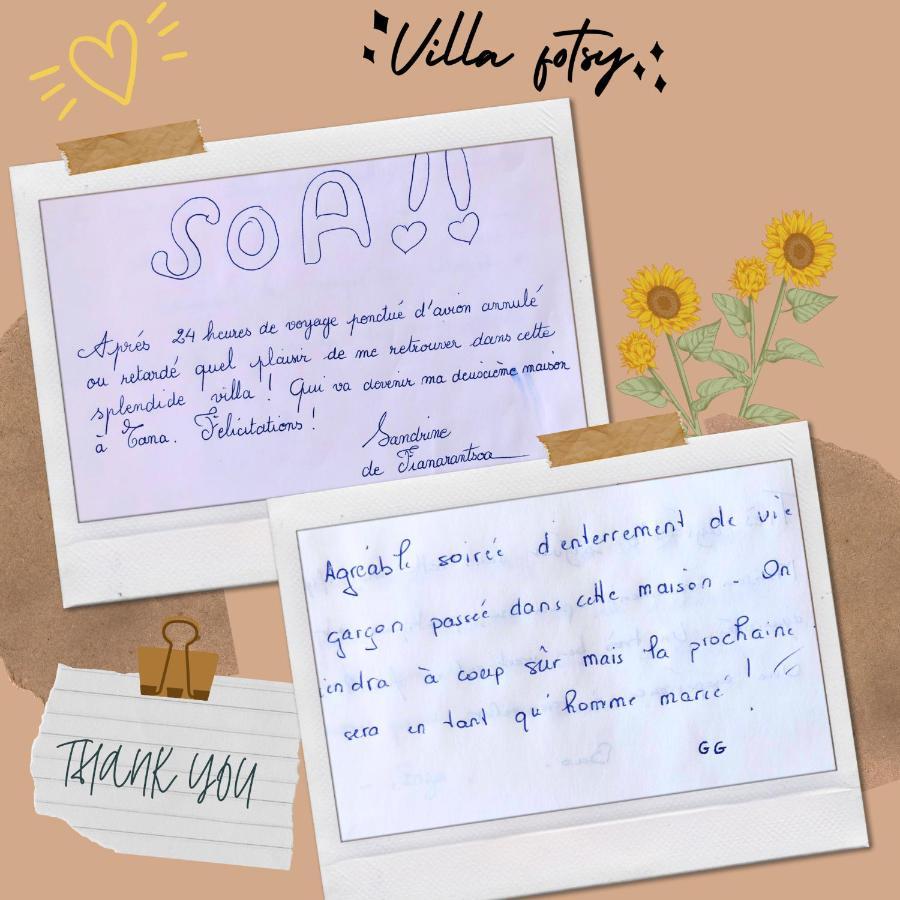 Villa fotsy
SOA !!
Après 24 heures de voyage ponctué d'avion annulé
ou retardé quel plaisir de me retrouver dans cette
splendide villa ! Qui va devenir ma deuxième maison
à Tana. Félicitations !
Sandrine
de Fianarantsoa
Agréable soirée d'enterrement de vie
garçon passée dans cette maison - On
endra à coup sûr mais la prochaine
sera en tant qu'homme marié !
GG
THANK YOU